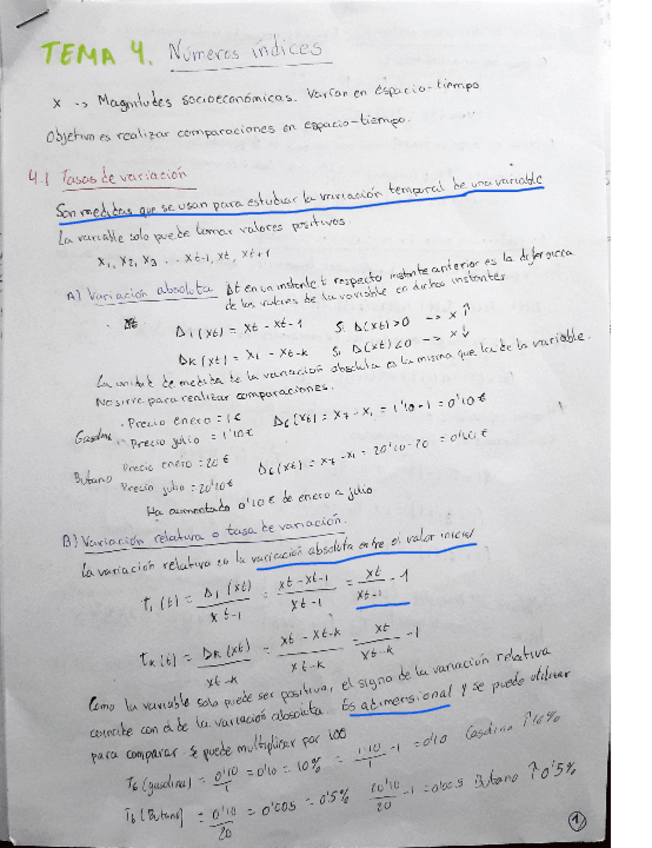 TEMA 4. Números índices
x -> Magnitudes socioeconómicas. Varían en espacio-tiempo
Objetivo es realizar comparaciones en espacio-tiempo.
4.1 Tasas de variación
Son medidas que se usan para estudiar la variación temporal de una variable
La variable solo puede tomar valores positivos.
x1, x2, x3 ... xt-1, xt, xt+1
A) Variación absoluta Δt en un instante t respecto instante anterior es la diferencia
de los valores de la variable en dichos instantes
Δ1(xt) = xt - xt-1 Si Δ(xt)>0 -> x↑
Δk(xt) = xt - xt-k Si Δ(xt)<0 -> x↓
La unidad de medida de la variación absoluta es la misma que la de la variable.
No sirve para realizar comparaciones.
Gasolina · Precio enero = 1€ Δ6(xt) = x7 - x1 = 1'10 - 1 = 0'10€
· Precio julio = 1'10€
Butano Precio enero = 20€ Δ6(xt) = x7 - x1 = 20'10 - 20 = 0'10€
Precio julio = 20'10€
Ha aumentado 0'10€ de enero a julio
B) Variación relativa o tasa de variación.
La variación relativa es la variación absoluta entre el valor inicial
t1(t) = Δ1(xt) / xt-1 = xt - xt-1 / xt-1 = xt / xt-1 - 1
tk(t) = Δk(xt) / xt-k = xt - xt-k / xt-k = xt / xt-k - 1
Como la variable solo puede ser positiva, el signo de la variación relativa
coincide con el de la variación absoluta. Es adimensional y se puede utilizar
para comparar. Se puede multiplicar por 100
T6(gasolina) = 0'10 / 1 = 0'10 = 10% = 1'10 / 1 - 1 = 0'10 Gasolina ↑10%
T6(Butano) = 0'10 / 20 = 0'005 = 0'5% 20'10 / 20 - 1 = 0'005 Butano ↑0'5%
1